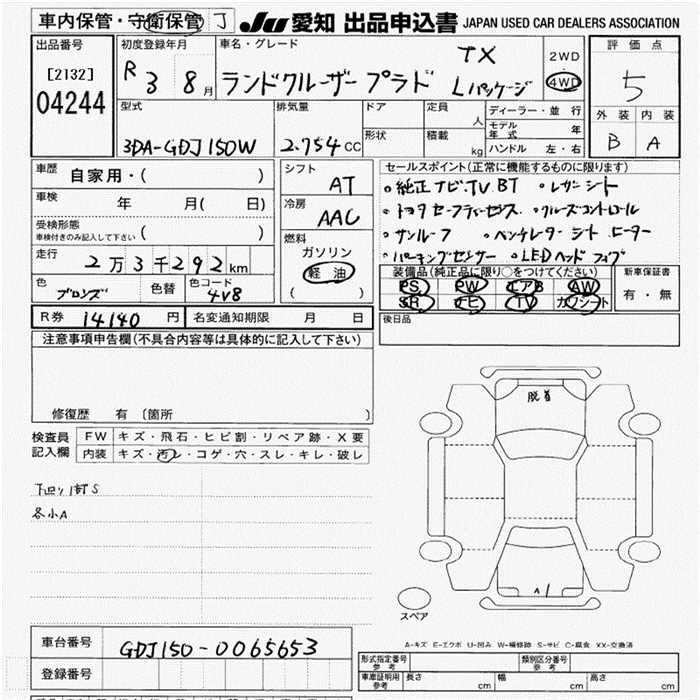 車内保管・守衛保管 J
JU 愛知 出品申込書 JAPAN USED CAR DEALERS ASSOCIATION
出品番号
[2132]
04244
初度登録年月
R 3 8月
車名・グレード
TX
ランドクルーザー プラド Lパッケージ
2WD
4WD
評価点
5
外装 内装
B A
型式
3DA-GDJ150W
排気量
2.754cc
ドア
形状
定員 人
積載 kg
ディーラー・並行
モデル年式 年
ハンドル 左・右
車歴
自家用・( )
車検
年 月( 日)
受検形態
車検付きのみ記入して下さい ( )
走行
2万3千292km
色
ブロンズ
色替
色コード
4V8
シフト
AT
冷房
AAC
燃料
ガソリン
軽油
( )
セールスポイント(正常に機能するものに限ります)
○純正ナビ.TV.BT ○レザーシート
○トヨタセーフティーセンス. ○クルーズコントロール
○サンルーフ ○ベンチレターシートヒーター
○パーキングセンサー ○LEDヘッドフォグ
装備品(純正品に限り○をつけてください)
PS PW エアB AW
SR ナビ TV カワシート
新車保証書
有・無
後日品
R券 14140円
名変通知期限 月 日
注意事項申告欄(不具合内容等は具体的に記入して下さい)
修復歴 有 〔箇所 〕
検査員記入欄
FW キズ・飛石・ヒビ割・リペア跡・X要
内装 キズ・汚レ・コゲ・穴・スレ・キレ・破レ
各小A
脱着
A1
スペア
A-キズ E-エクボ U-凹み W-補修跡 S-サビ C-腐食 XX-交換済
車台番号 GDJ150-0065653
登録番号
形式指定番号 参考
類別区分番号 参考
車庫証明用 参考 長さ cm 幅 cm 高さ cm